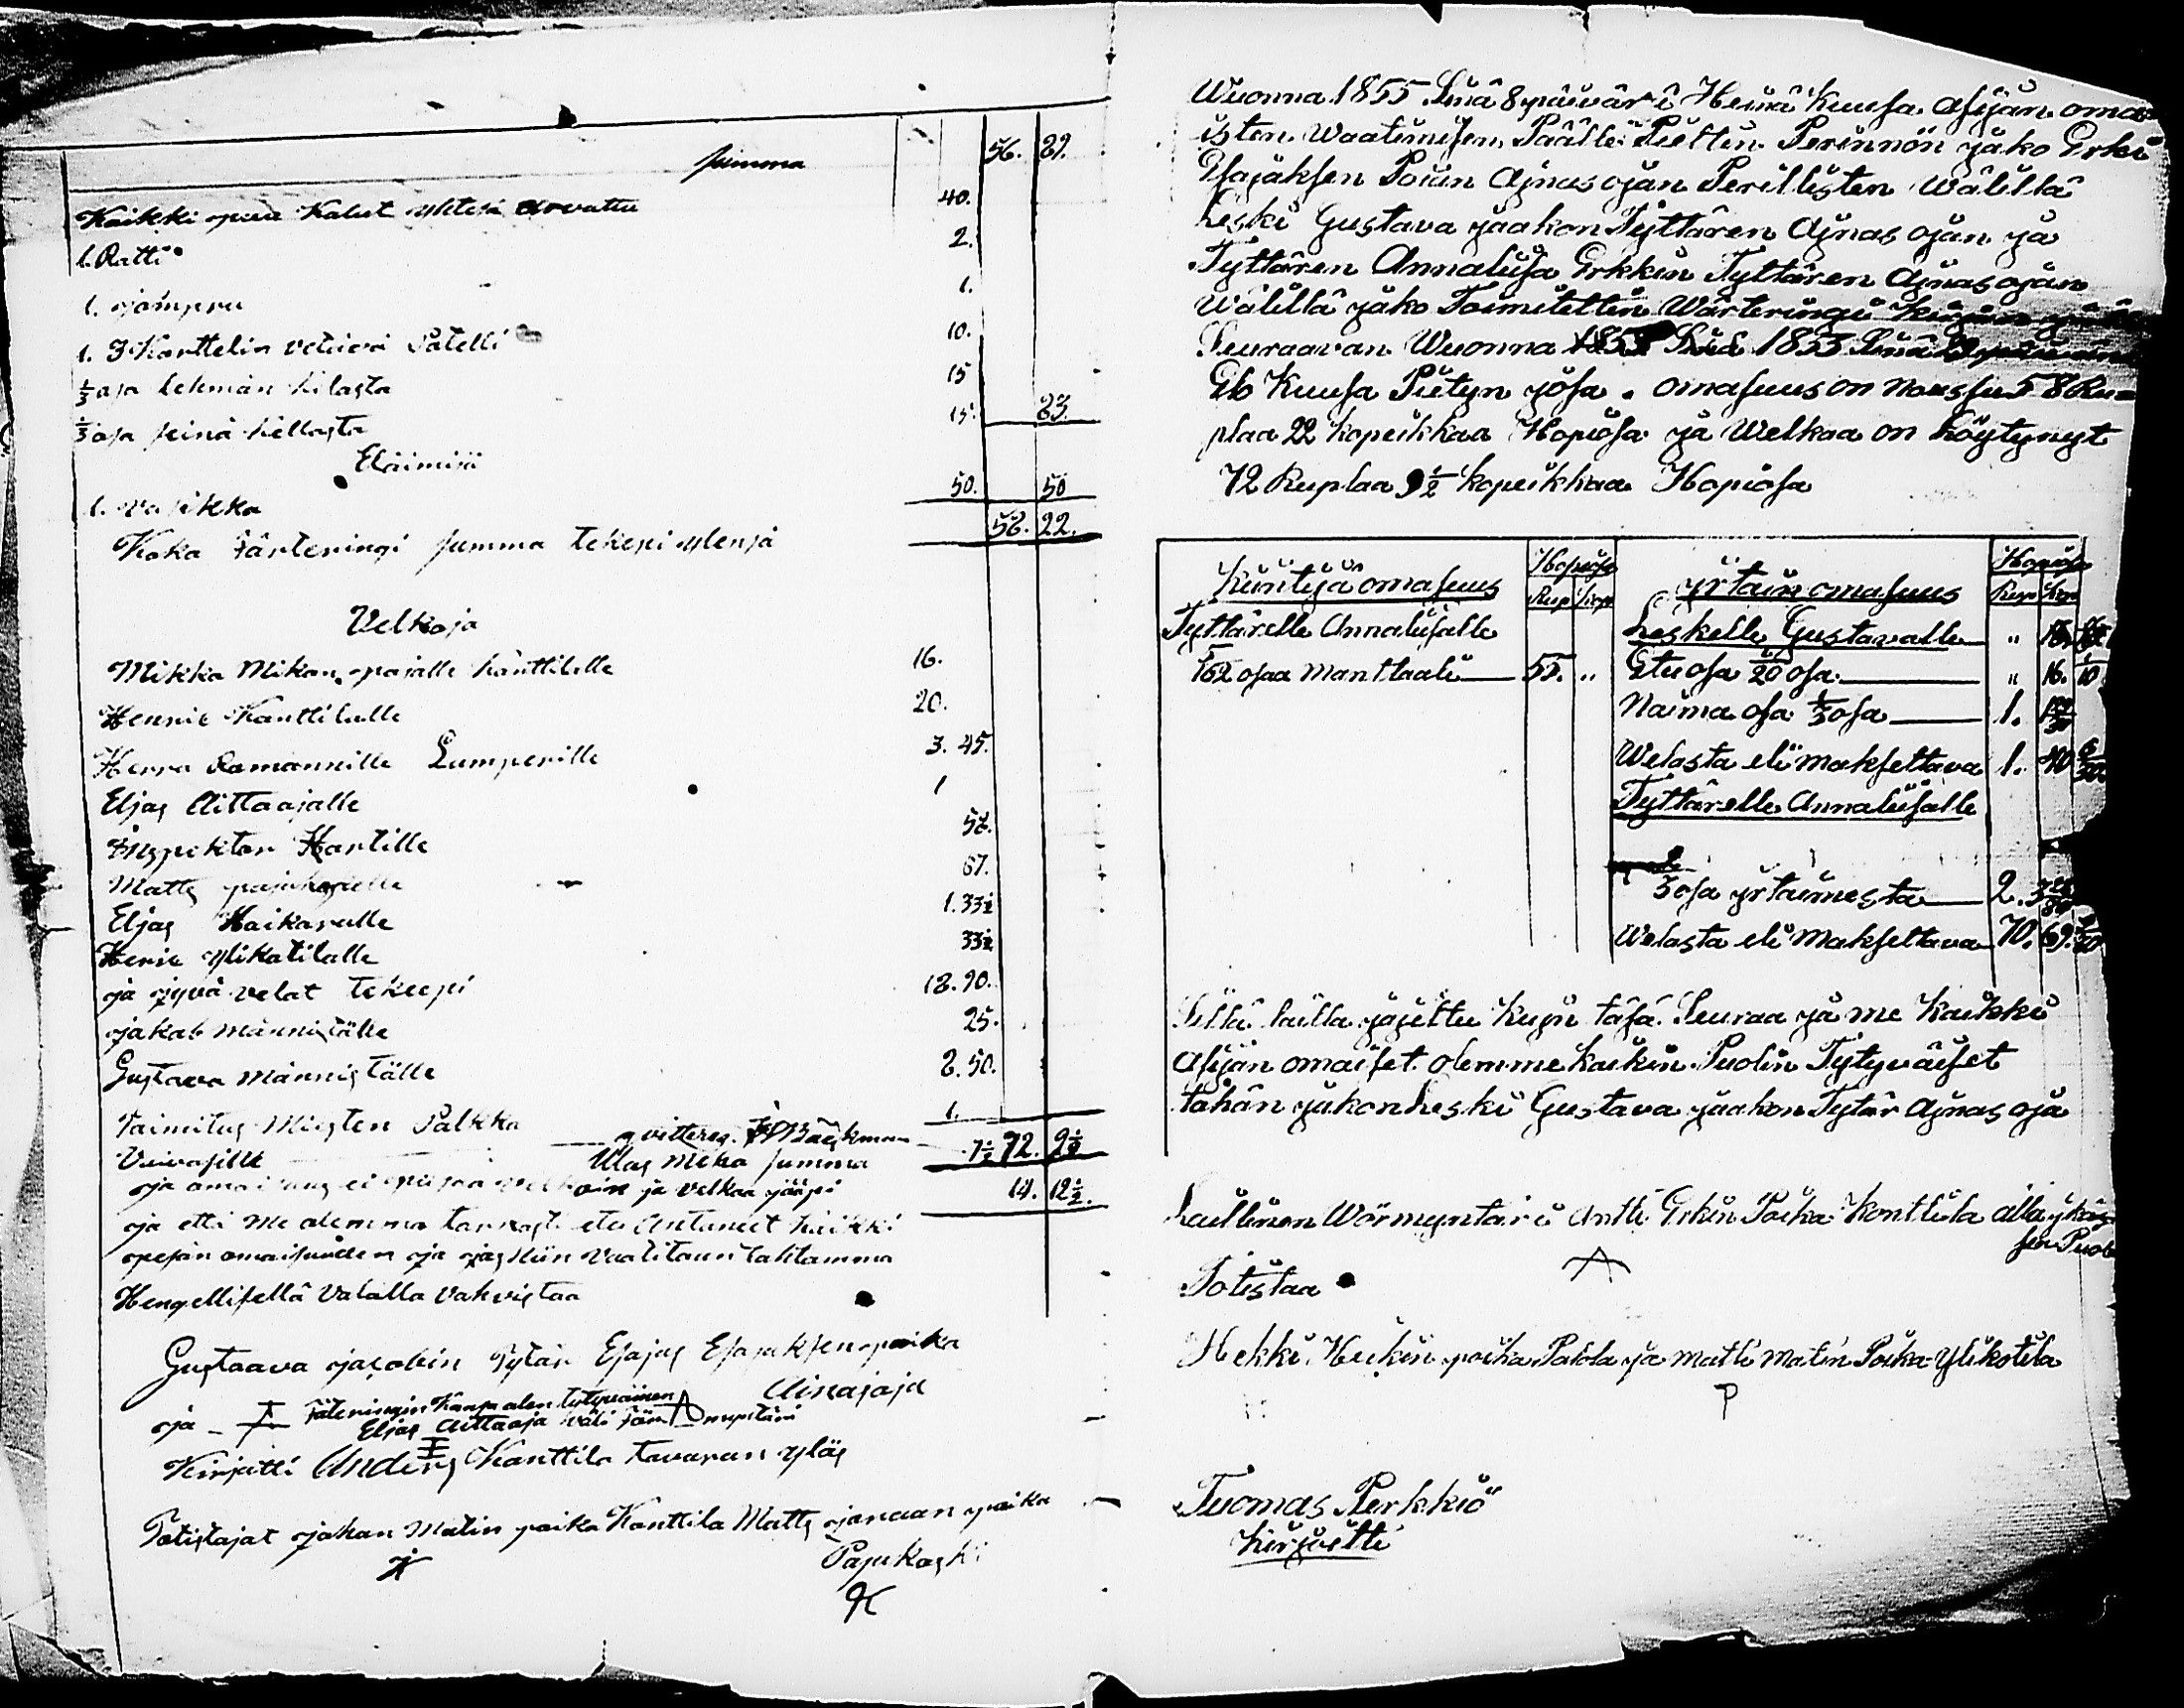 summa 56. 89.
Kaikki puu Kalut yhtesä arvattu 40.
1. Ratti 2.
1. jampru 1.
1. 3 Karttelin vetävä Patelli 10.
1/3 asa lehmän hilasta 15
1/3 asa seinä kellasta 15. 83.
Eläimisä
1. vasikka 50. 50
Koka Färteringi summa tekepi ylensä 58. 22.
Velkoja
Mikka Mikan pajalle känttilälle 16.
Hennie Kanttilalle 20.
Herra Lumperille 3. 45.
Eljas Aittaajalle 1
Inspehtor Hartille 58.
Matts pajukaselle 67.
Eljas Haikaralle 1. 33 1/2
Henie Ylikatilalle 33 1/2
ja jyvä velat tekeepi 18. 90.
jakab männiställe 25.
Gustava männiställe 2. 50.
Taimitus Miesten Palkka 1.
Vaivasille qvitteras. Bäckman 7 1/2 72. 9 1/2
Ulas Mika summa
ja ei velkoin ja velkaa jääpi 14. 12 1/2.
ja että me alemma tarkasti Antaneet kaikki
pesän omaisuuden ja jas niin vaatitaan tahtamma
Hengellisellä Valalla Vahvistaa
Gustaava jacobin Tytär Esajas Esajaksen paika
Ainajaja
ja Fäteringin Känsa alen tytyväinen
Eljas Aittaaja väli
Kirjatti Anders Kanttila tavaran yläs
Tatistajat jahan Matin paika Kanttila Matts janaan paika
Pajukaski
Wuonna 1855 Sinä 8 päivänä Heinä Kuusa asijan oma
isten Waatimisen Päälle Piettin Perinnön jako Erki
Esajaksen Pojan Ajnas ojan Perillisten Wälillä
Leski Gustava jaakon Tyttären Ajnas ojan ja
Tyttären Annaliisa Erkkin Tyttären Ajnas ojan
Wälillä jako Toimitettin Wärteringi
Seuraavan Wuonna 1853 Sinä
Elo Kuusa Pietyn josa. omasuus on noussu 58 Ru=
plaa 22 kopeikkaa Hopiosa ja Welkaa on Löytynyt
72 Ruplaa 9 1/2 kopeikkaa Hopiosa
Kiintijä omasuus Hopiosa Rup kop yrtain omasuus Hopiosa Rup kop
Tyttärelle Annaliisalle Leskelle Gustavalle
5/162 osaa manttaali 55. " Etu osa 1/20 osa " 16. 1/10
Naima osa 1/3 osa 1.
Welasta eli maksettava 1. 40
Tyttärelle Annaliisalle
2/3 osa yrtaimesta 2.
Welasta eli maksettava 70. 69.
Sillä lailla jajettu kujn täsä Seuraa ja me Kaikki
Asijan omaiset olemme kaikin Puolin Tytyväiset
tähän jakon Leski Gustava jaakon Tytär Ajnas oja
Laillinen Wörmyntäri Antti Erkin Poika Konttila
Totistaa
Hekki Heikin poika Palola ja matti matin Poika Ylikotila
Tuomas Perkkiö
kirjoitti